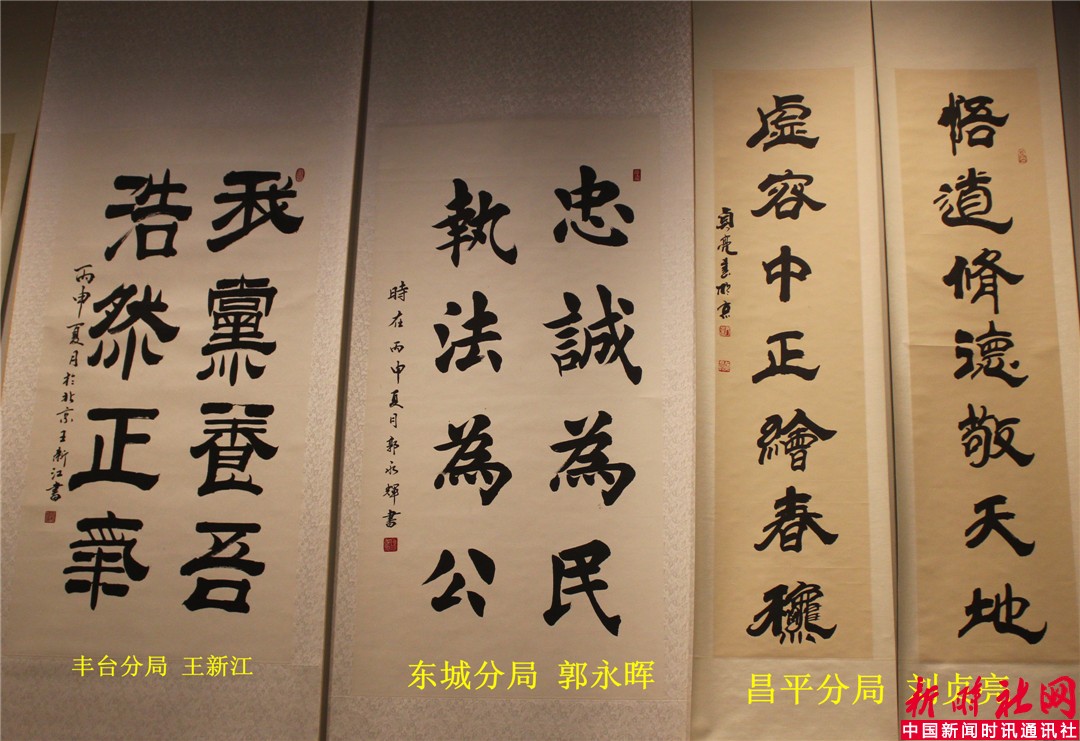 我黨養吾
浩然正氣
丙申夏月於北京王新江書
忠誠為民
執法為公
時在丙申夏月郭永輝書
悟道脩德敬天地
虛容中正繪春龝
貞亮書於京
丰台分局 王新江
东城分局 郭永晖
昌平分局 刘贞亮
新时社网
中国新闻时讯通讯社